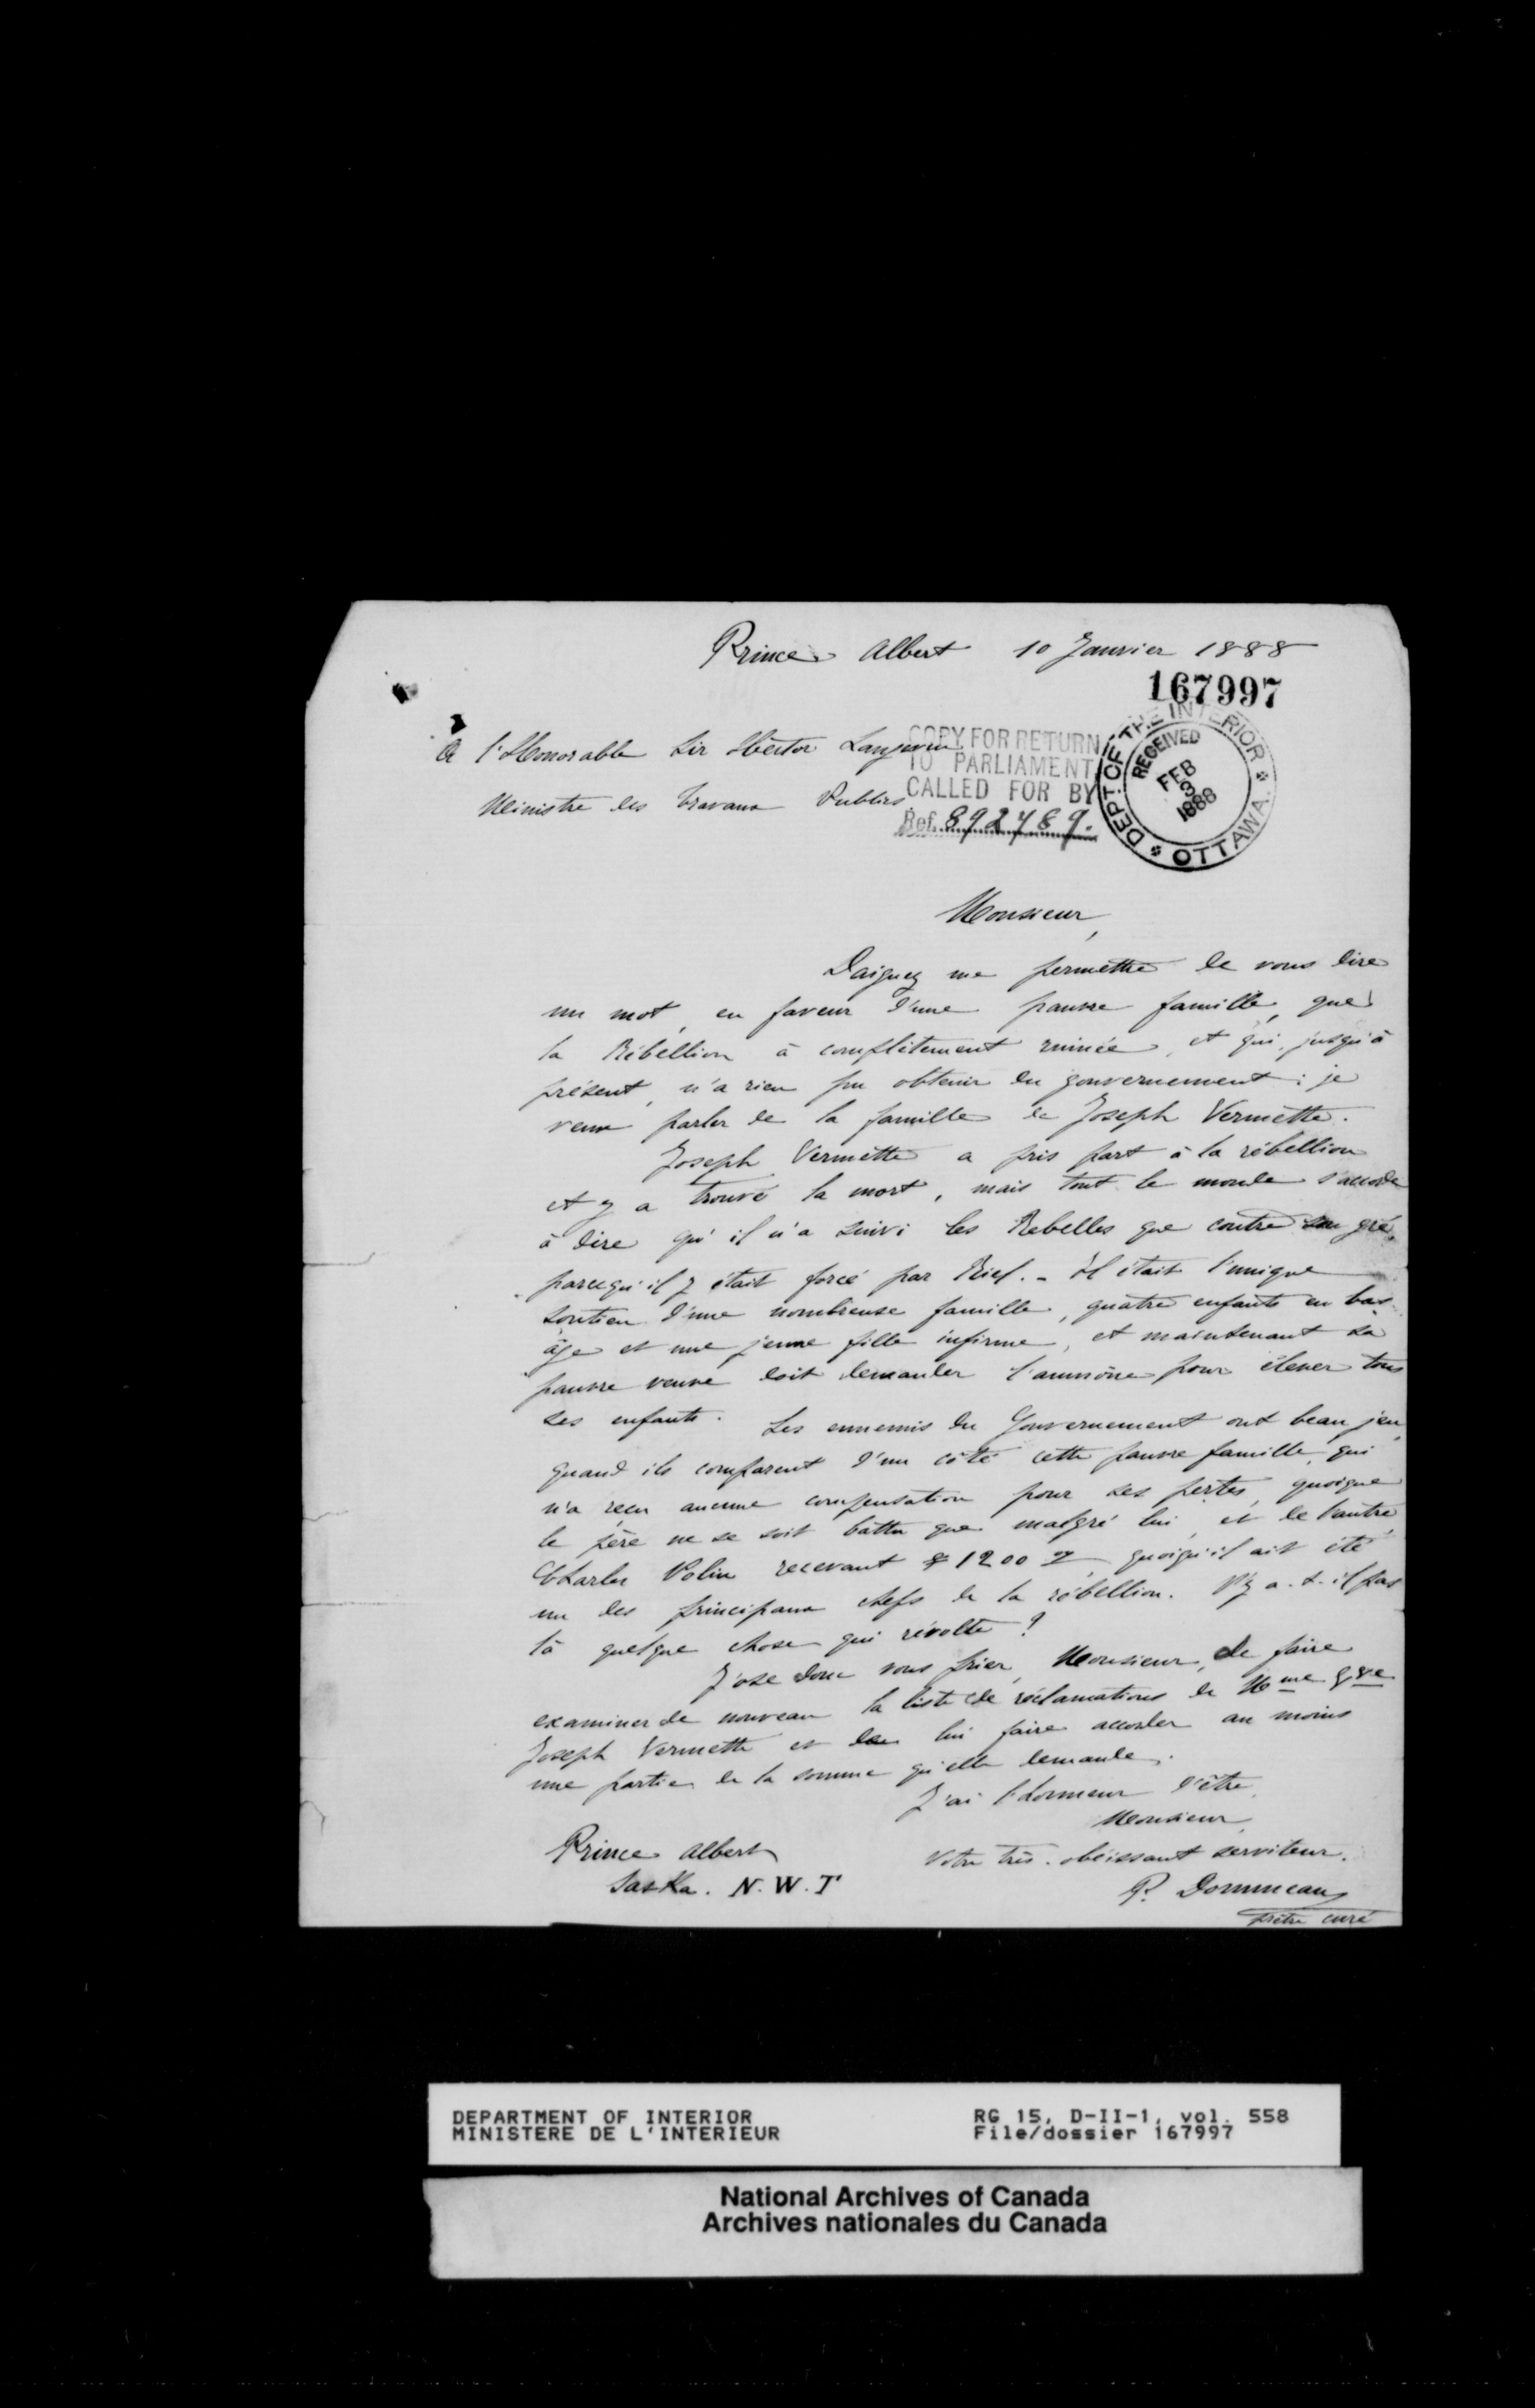 Prince Albert 10 Janvier 1888
167997
A l'Honorable Sir Hector Langevin
Ministre des travaux Publics
COPY FOR RETURN
TO PARLIAMENT
CALLED FOR BY
Ref. 892789.
DEPT. OF THE INTERIOR
OTTAWA
RECEIVED
FEB
3
1888
Monsieur,
Daignez me permettre de vous dire
un mot, en faveur d'une pauvre famille, que
la Rébellion à complètement ruinée, et qui, jusqu'à
présent, n'a rien pu obtenir du gouvernement: je
veux parler de la famille de Joseph Vermette.
Joseph Vermette a pris part à la rébellion
et y a trouvé la mort, mais tout le monde s'accorde
à dire qu'il n'a suivi les Rebelles que contre son gré,
parcequ'il y était forcé par Riel. - Il était l'unique
soutien d'une nombreuse famille, quatre enfants en bas
âge et une jeune fille infirme, et maintenant sa
pauvre veuve doit demander l'aumône pour élever tous
ses enfants. Les ennemis du Gouvernement ont beau jeu,
quand ils comparent d'un côté cette pauvre famille, qui
n'a reçu aucune compensation pour ses pertes, quoique
le père ne se soit battu que malgré lui, et de l'autre,
Charles Nolin recevant $1200 quoiqu'il ait été
un des principaux chefs de la rébellion. N'y a-t-il pas
là quelque chose qui révolte?
J'ose donc vous prier, Monsieur, de faire
examiner de nouveau la liste de réclamations de Mme Vve
Joseph Vermette et de lui faire accorder au moins
une partie de la somme qu'elle demande.
J'ai l'honneur d'être,
Monsieur,
Votre très-obéissant serviteur.
Prince Albert
Saska. N.W.T
P. Dommeau
Prêtre curé
DEPARTMENT OF INTERIOR
MINISTERE DE L'INTERIEUR
RG 15, D-II-1, vol. 558
File/dossier 167997
National Archives of Canada
Archives nationales du Canada